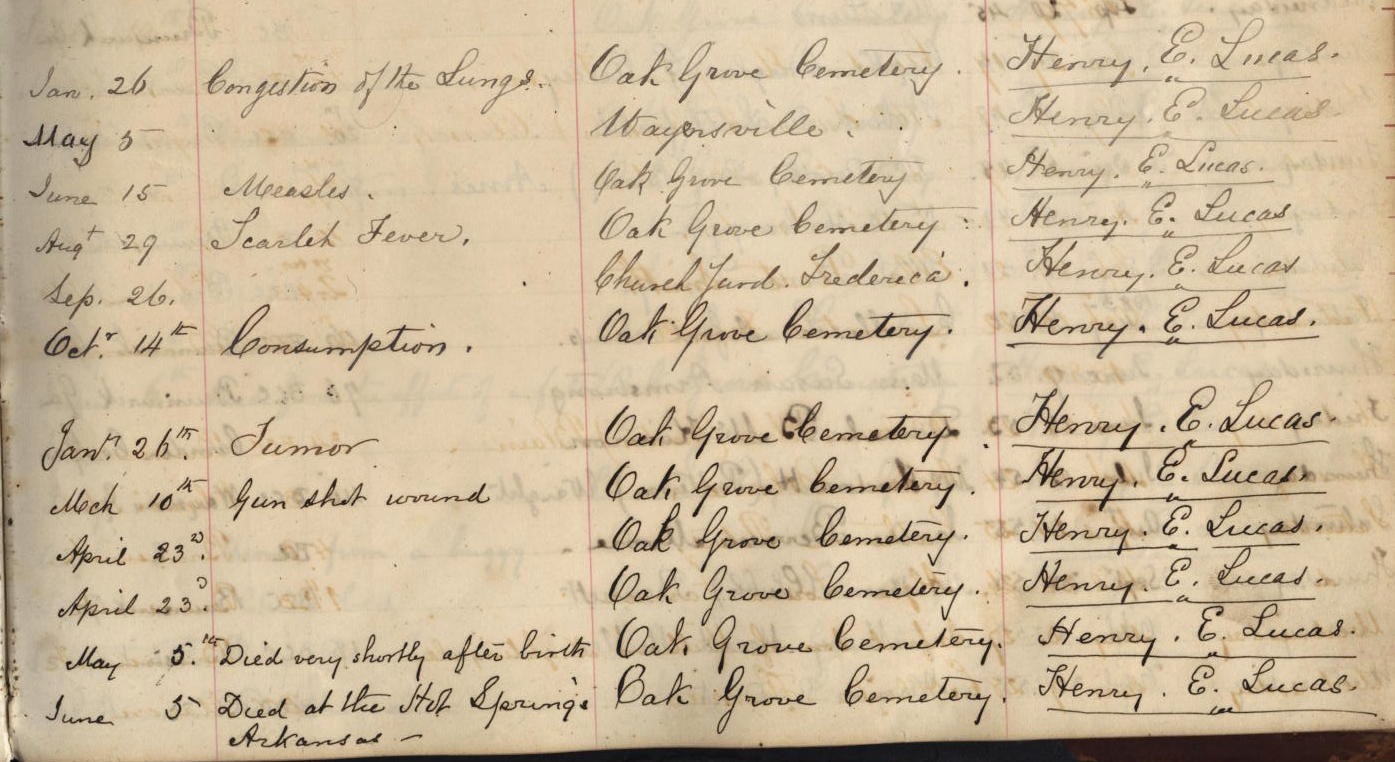 Jan. 26 Congestion of the Lungs. Oak Grove Cemetery. Henry. E. Lucas.
May 5 Waynesville. Henry. E. Lucas.
June 15 Measles. Oak Grove Cemetery Henry. E. Lucas.
Augt 29 Scarlet Fever. Oak Grove Cemetery: Henry. E. Lucas
Sep. 26. Church Yard. Frederica. Henry. E. Lucas
Octr. 14th Consumption. Oak Grove Cemetery. Henry. E. Lucas.
Jany. 26th. Tumor Oak Grove Cemetery. Henry. E. Lucas.
Mch 10th Gun shot wound Oak Grove Cemetery. Henry. E. Lucas.
April 23d. Oak Grove Cemetery. Henry. E. Lucas.
April 23d. Oak Grove Cemetery. Henry. E. Lucas.
May 5.th Died very shortly after birth Oak Grove Cemetery. Henry. E. Lucas.
June 5 Died at the Hot Spring's Oak Grove Cemetery. Henry. E. Lucas.
Arkansas -